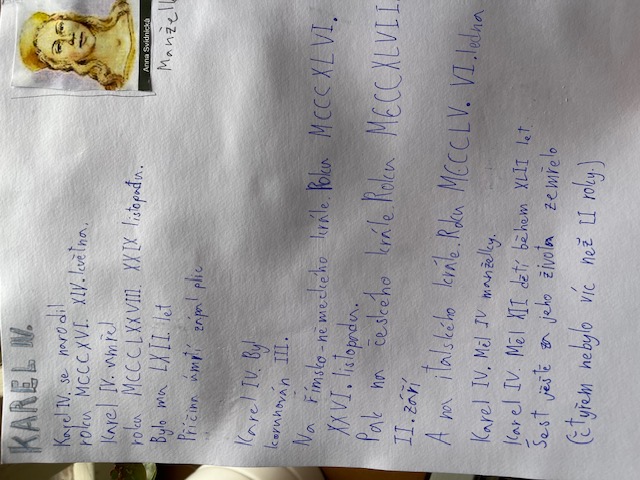 KAREL IV.
Karel IV. se narodil
roku MCCCXVI. XIV. května.
Karel IV. umřel
roku MCCCLXXVIII. XXIX listopadu.
Bylo mu LXII let
Příčina úmrtí zápal plic
Karel IV. By
korunován III.
Na římsko-německého krále. Roku MCCCXLVI.
XXVI. listopadu.
Pak na českého krále Roku MCCCXLVII.
II. září
A na italského krále. Roku MCCCLV. VI. ledna
Karel IV. Měl IV manželky.
Karel IV. Měl XII dětí během XLII let
Šest ještě za jeho života zemřelo
(čtyřem nebylo víc než II roky.)
Anna Svídnická